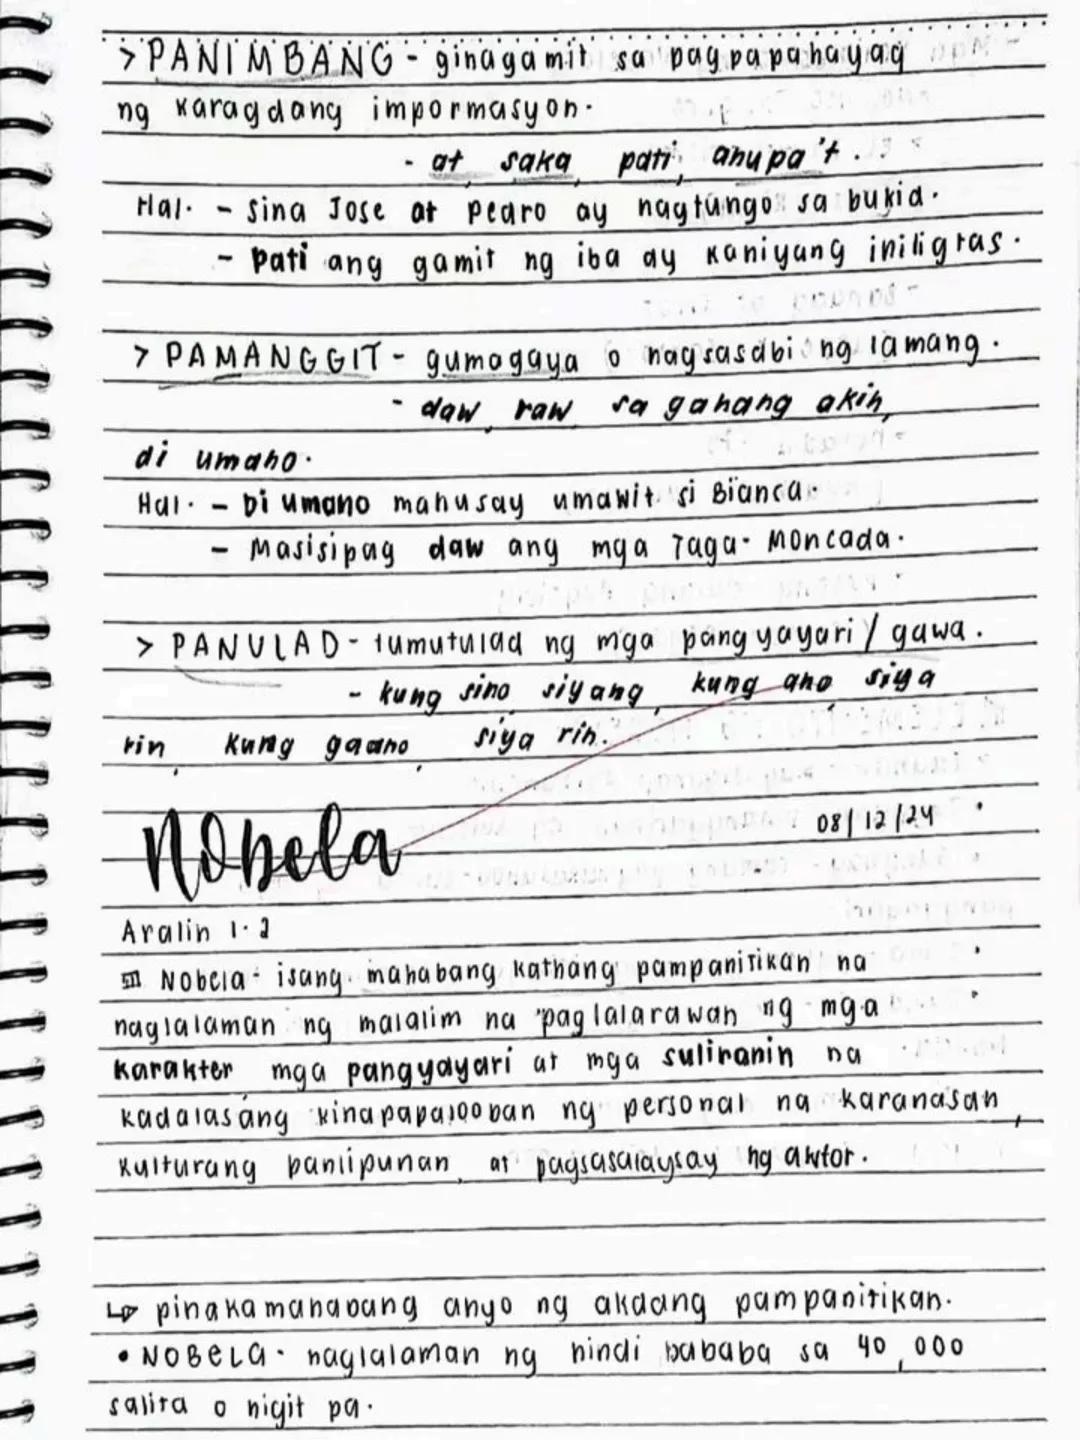 > PANIMBANG - ginagamit sa pagpapahayag
ng karagdang impormasyon.
- at, saka, pati, anupa't.
Hal. - Sina Jose at Pedro ay nagtungo sa bukid.
- Pati ang gamit ng iba ay kaniyang iniligtas.
> PAMANGGIT - gumagaya o nagsasabi ng lamang.
- daw, raw, sa ganang akin,
di umano.
Hal. - Di umano mahusay umawit si Bianca.
- Masisipag daw ang mga Taga- Moncada.
> PANULAD - tumutulad ng mga pangyayari / gawa.
- kung sino, siyang, kung ano, siya
rin, kung gaano, siya rin.
Nobela
08/12/24
Aralin 1.2
Nobela - isang mahabang kathang pampanitikan na
naglalaman ng malalim na paglalarawan ng mga
karakter mga pangyayari at mga suliranin na
kadalasang kinapapalooban ng personal na karanasan,
kulturang panlipunan, at pagsasalaysay ng awtor.
↳ pinakamahabang anyo ng akdang pampanitikan.
• NOBELA - naglalaman ng hindi bababa sa 40,000
salita o higit pa.